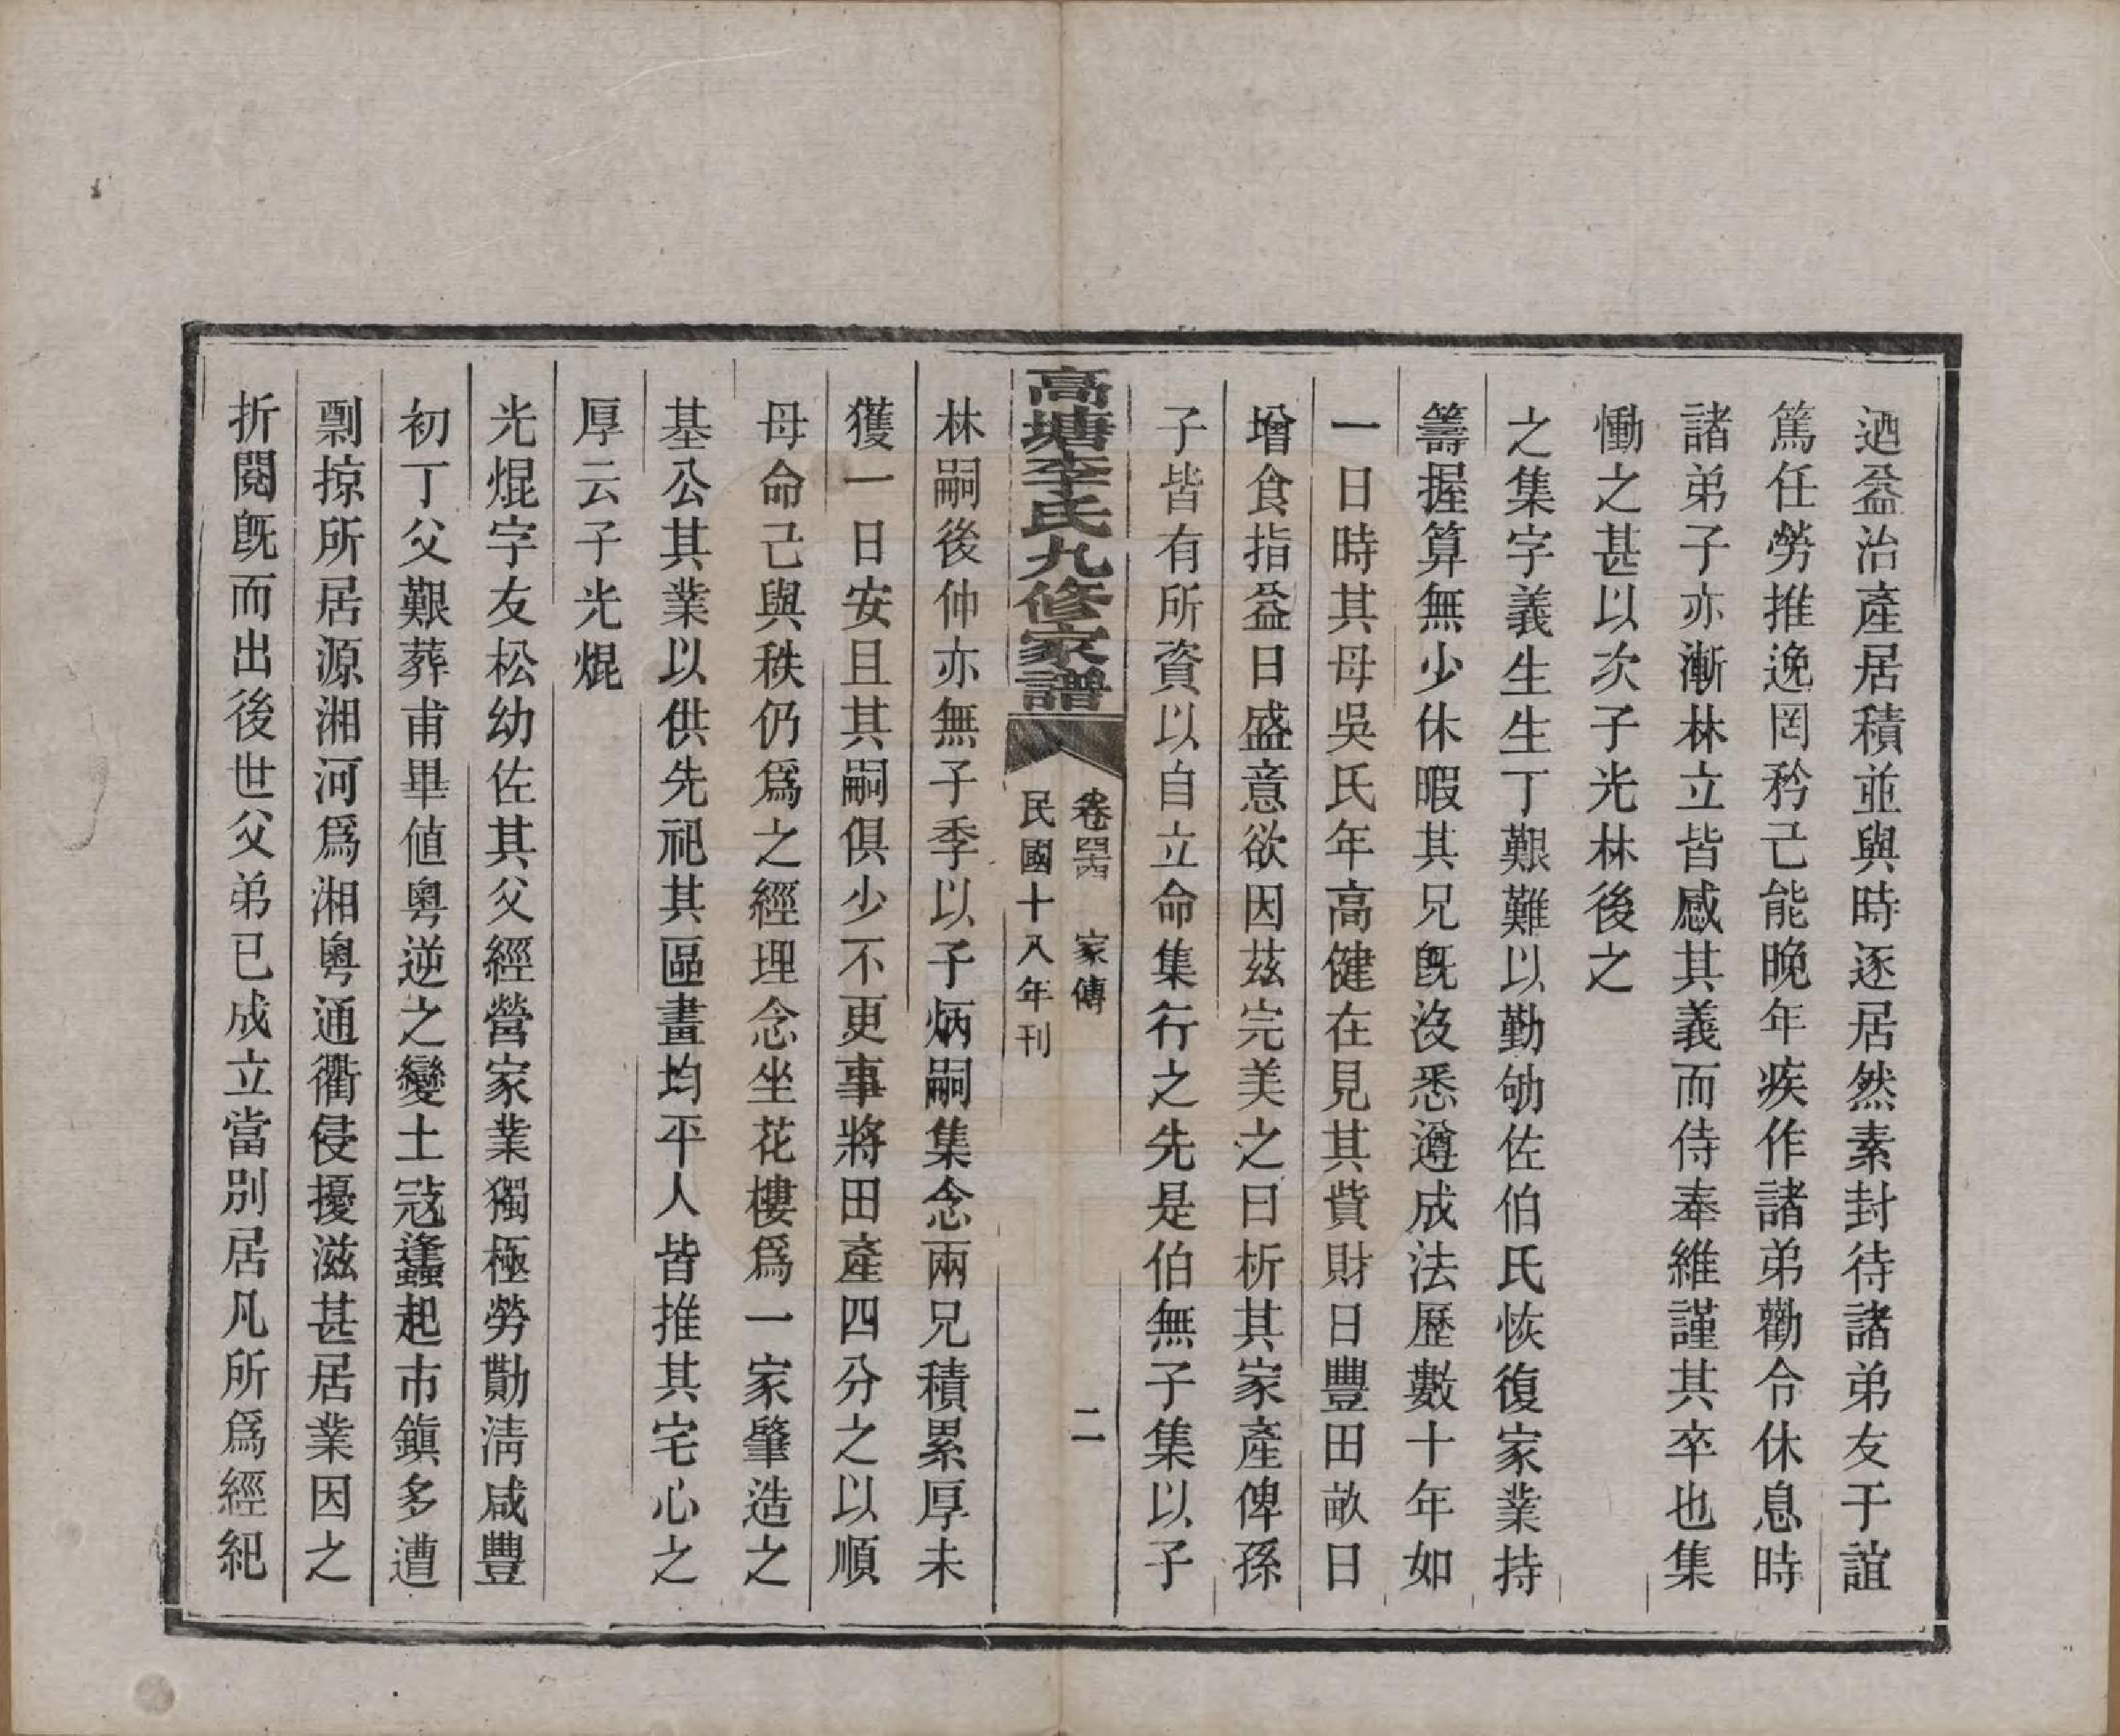 迺益治產居積並與時逐居然素封待諸弟友于誼
篤任勞推逸罔矜己能晚年疾作諸弟勸令休息時
諸弟子亦漸林立皆感其義而侍奉維謹其卒也集
慟之甚以次子光林後之
之集字義生生丁艱難以勤劬佐伯氏恢復家業持
籌握算無少休暇其兄既沒悉遵成法歷數十年如
一日時其母吳氏年高健在見其貲財日豐田畝日
增食指益日盛意欲因茲完美之曰析其家產俾孫
子皆有所資以自立命集行之先是伯無子集以子
高塘李氏九修家譜
卷四四 家傳
二
民國十八年刊
林嗣後仲亦無子季以子炳嗣集念兩兄積累厚未
獲一日安且其嗣俱少不更事將田產四分之以順
母命己與秩仍爲之經理念坐花樓爲一家肇造之
基公其業以供先祀其區畫均平人皆推其宅心之
厚云子光焜
光焜字友松幼佐其父經營家業獨極勞勩淸咸豐
初丁父艱葬甫畢値粵逆之變土冦蠭起市鎭多遭
剽掠所居源湘河爲湘粵通衢侵擾滋甚居業因之
折閱既而出後世父弟已成立當別居凡所爲經紀